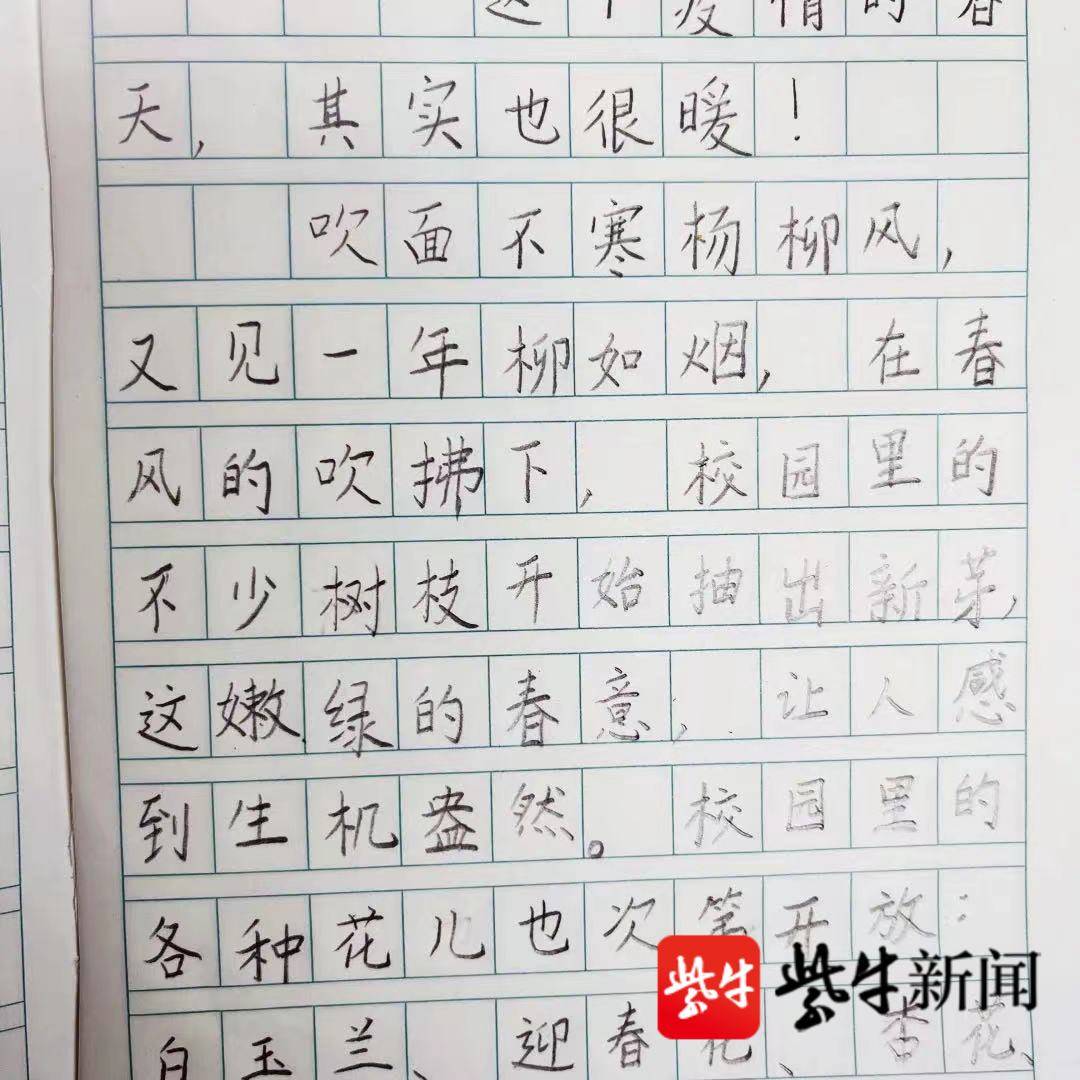 这个疫情的春
天,其实也很暖!
吹面不寒杨柳风,
又见一年柳如烟,在春
风的吹拂下,校园里的
不少树枝开始抽出新芽,
这嫩绿的春意,让人感
到生机盎然。校园里的
各种花儿也次第开放:
白玉兰、迎春花、杏花、
紫牛
紫牛新闻